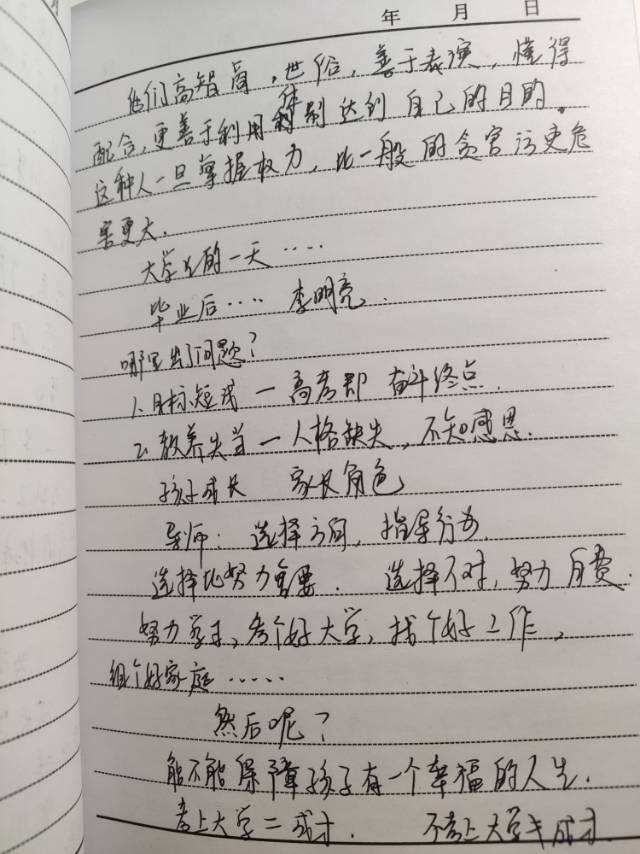 年 月 日
他们高智商，世俗，善于表演，懂得
配合，更善于利用体制达到自己的目的。
这种人一旦掌握权力，比一般的贪官污吏危
害更大.
大学生的一天 ....
毕业后 .... 李明亮.
哪里出了问题？
1. 目标短浅 — 高考即 奋斗终点.
2. 教养失当 — 人格缺失，不知感恩.
孩子成长 家长角色
导师：选择方向，指导行为
选择比努力重要. 选择不对，努力白费.
努力学习，考个好大学，找个好工作，
组个好家庭 .....
然后呢？
能不能保障孩子有一个幸福的人生.
考上大学=成才. 不考上大学≠成才.